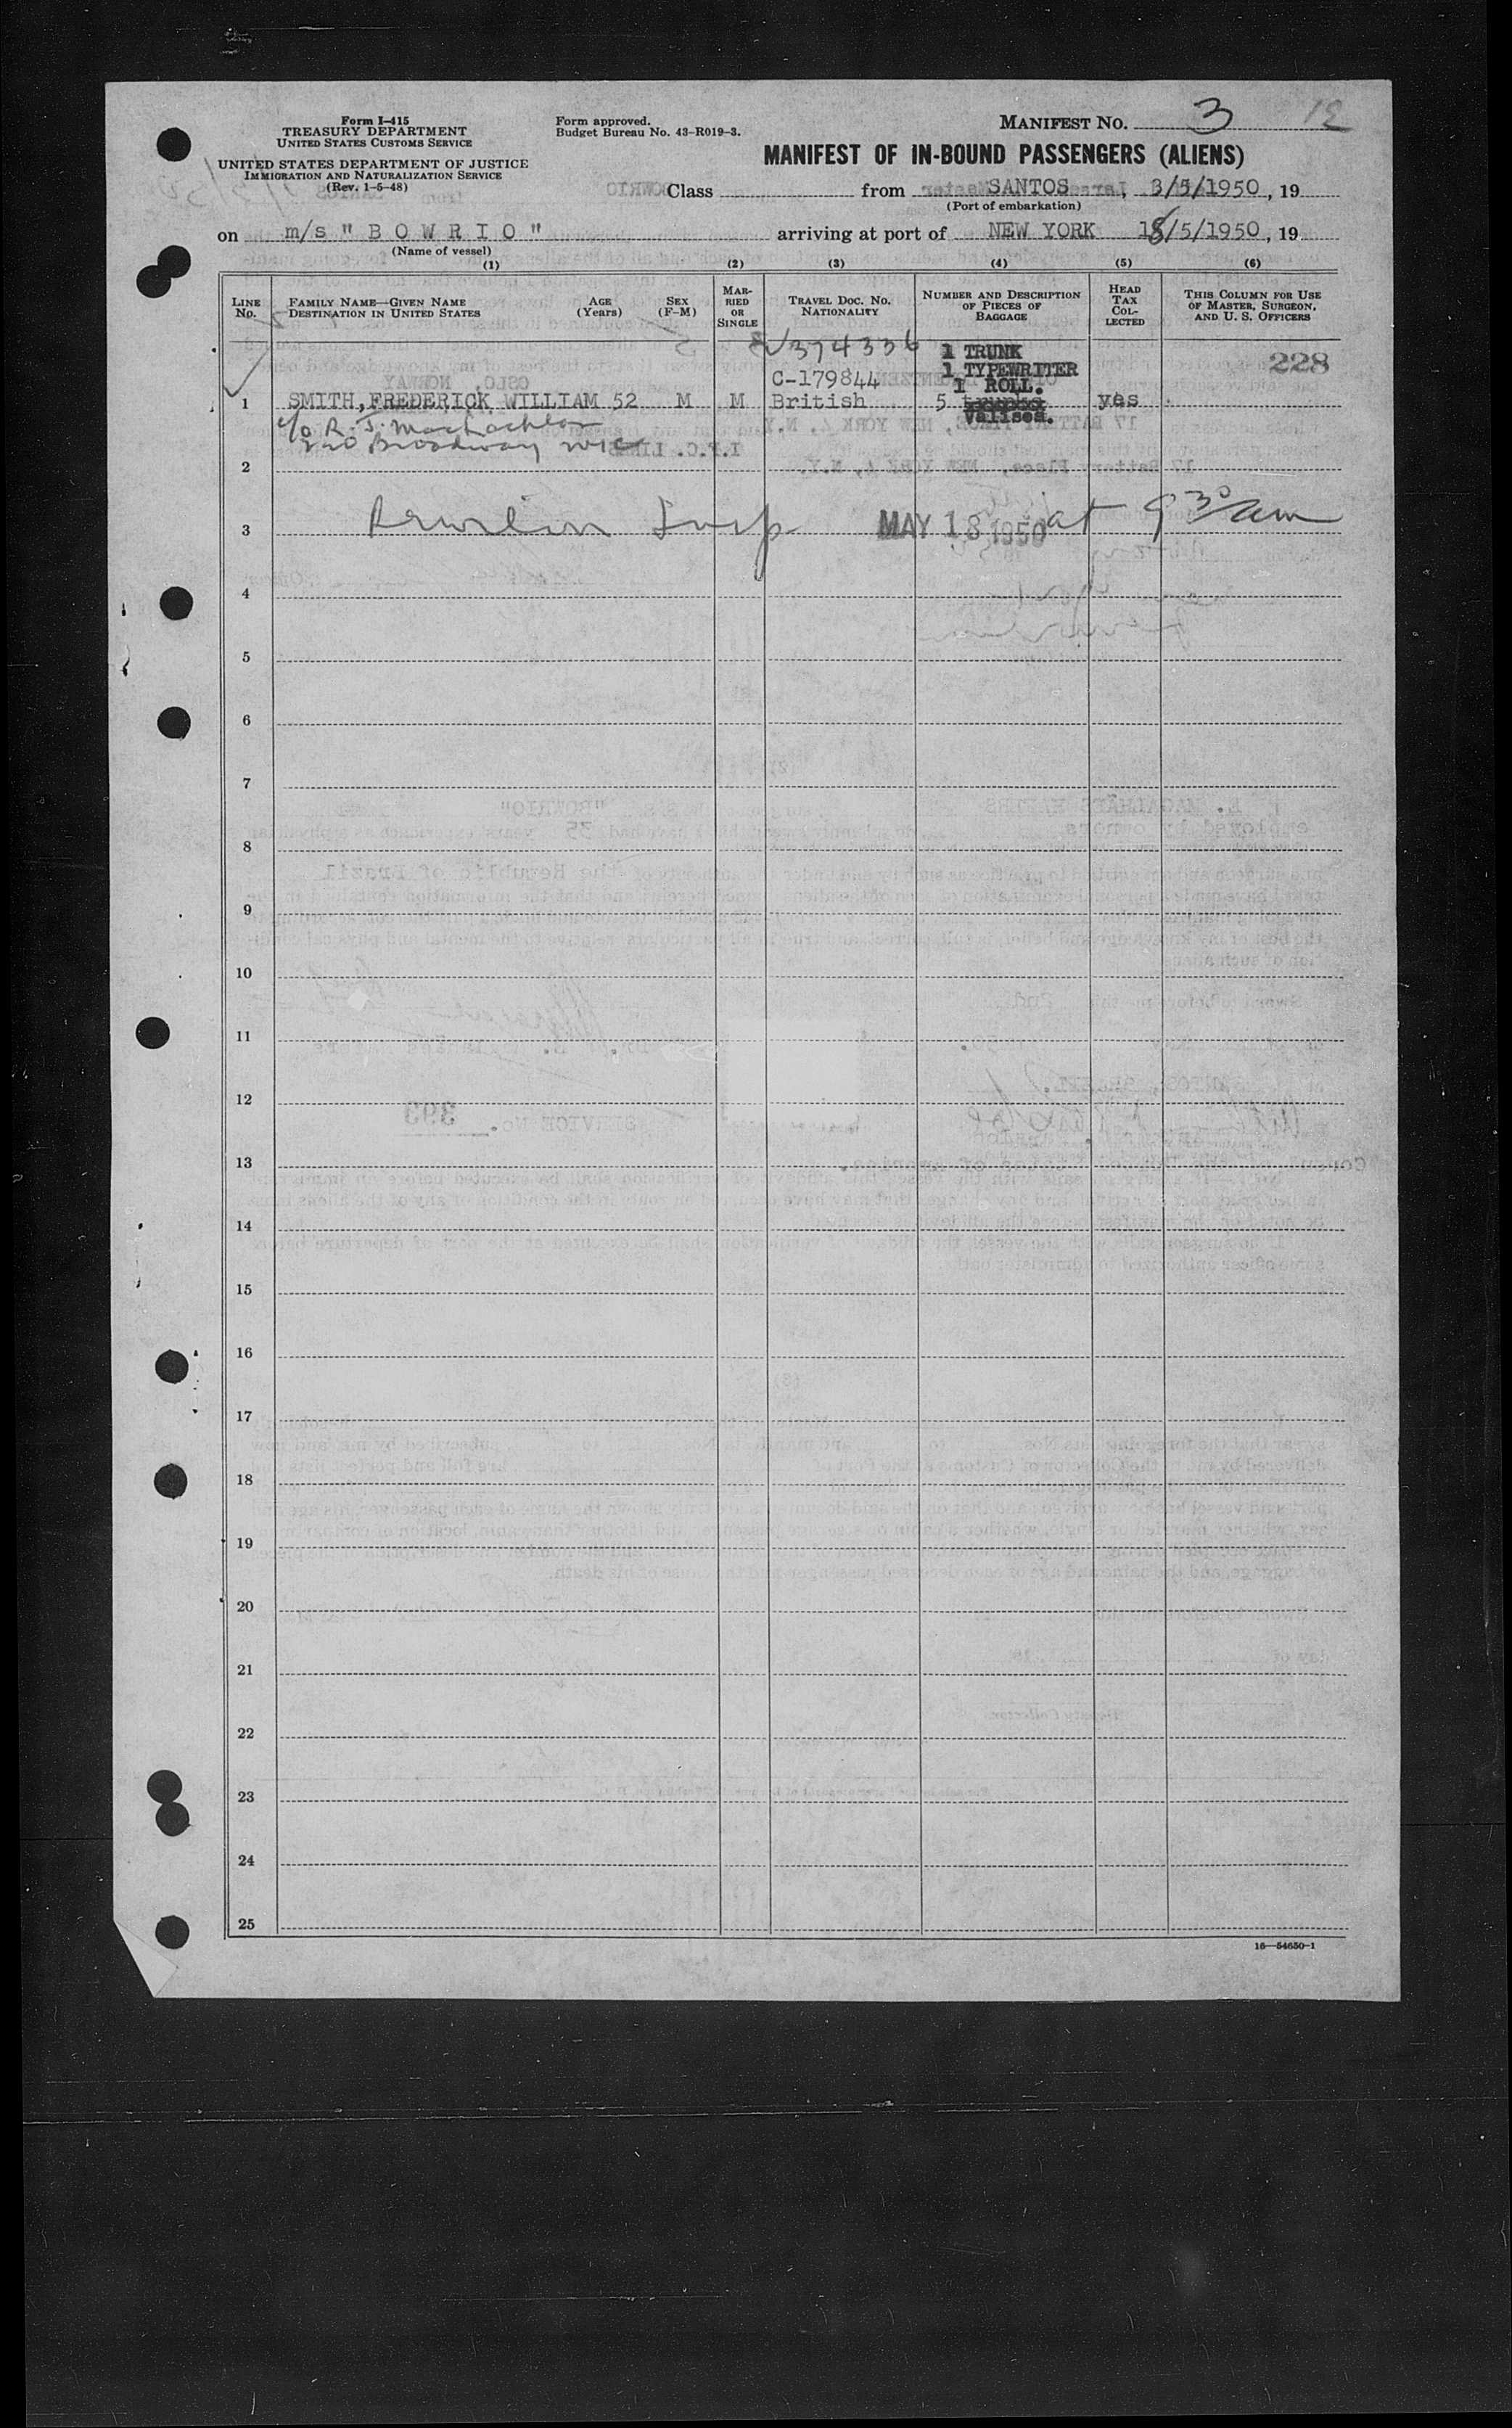 Form I-415
TREASURY DEPARTMENT
UNITED STATES CUSTOMS SERVICE
UNITED STATES DEPARTMENT OF JUSTICE
IMMIGRATION AND NATURALIZATION SERVICE
(Rev. 1-5-48)
Form approved.
Budget Bureau No. 43-R019-3.
MANIFEST NO. 3 12
MANIFEST OF IN-BOUND PASSENGERS (ALIENS)
Class from SANTOS, 3/5/1950, 19
(Port of embarkation)
on m/s "BOWRIO" arriving at port of NEW YORK 18/5/1950, 19
(Name of vessel)
(1) (2) (3) (4) (5) (6)
LINE No.
FAMILY NAME—GIVEN NAME
DESTINATION IN UNITED STATES
AGE (Years)
SEX (F-M)
MARRIED OR SINGLE
TRAVEL DOC. NO. NATIONALITY
NUMBER AND DESCRIPTION OF PIECES OF BAGGAGE
HEAD TAX COLLECTED
THIS COLUMN FOR USE OF MASTER, SURGEON, AND U. S. OFFICERS
V374336 1 TRUNK 228
C-179844 1 TYPEWRITER
1 ROLL.
1 SMITH, FREDERICK WILLIAM 52 M M British 5 yes
Valises.
c/o R. J. MacLachlan
220 Broadway
2
3 Insp MAY 18 1950 at 9 30 am
4
5
6
7
8
9
10
11
12
13
14
15
16
17
18
19
20
21
22
23
24
25
16—54650-1